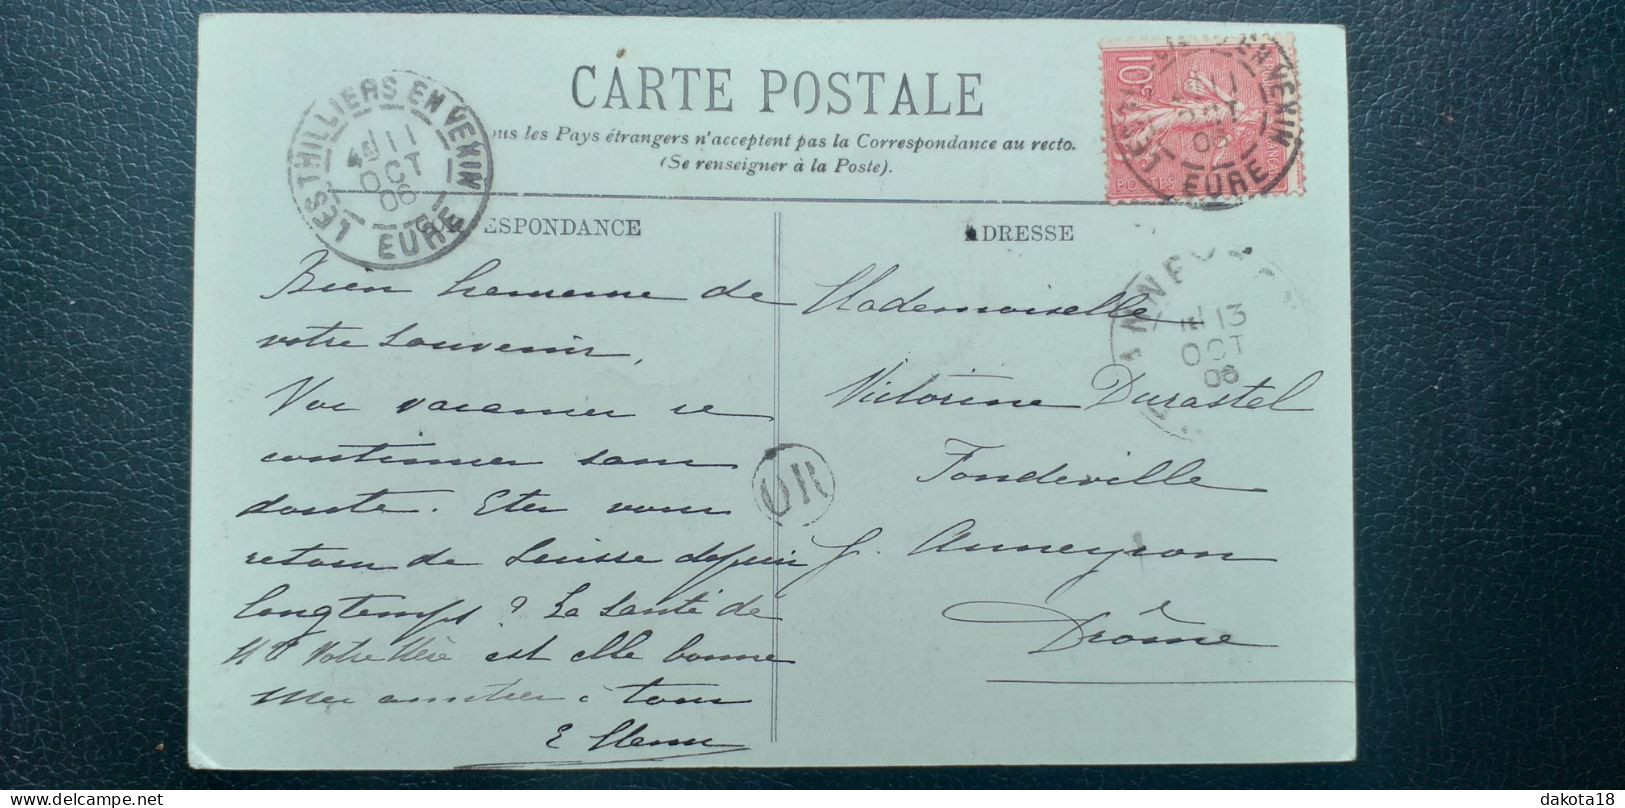 CARTE POSTALE
ous les Pays étrangers n'acceptent pas la Correspondance au recto.
(Se renseigner à la Poste).
LES THILLIERS EN VEXIN
11
OCT
06
EURE
10c
POSTES
LES THILLIERS EN VEXIN
11
OCT
06
EURE
ESPONDANCE
ADRESSE
Bien heureuse de
votre souvenir,
Vos vacances se
continuent sans
doute. Etes vous
retour de Suisse depuis
longtemps ? La santé de
Me Votre Mère est elle bonne
Mes amitiés à tous
OR
13
OCT
06
Mademoiselle
Victorine Durastel
Fondeville
p. Anneyron
Drôme
dakota18